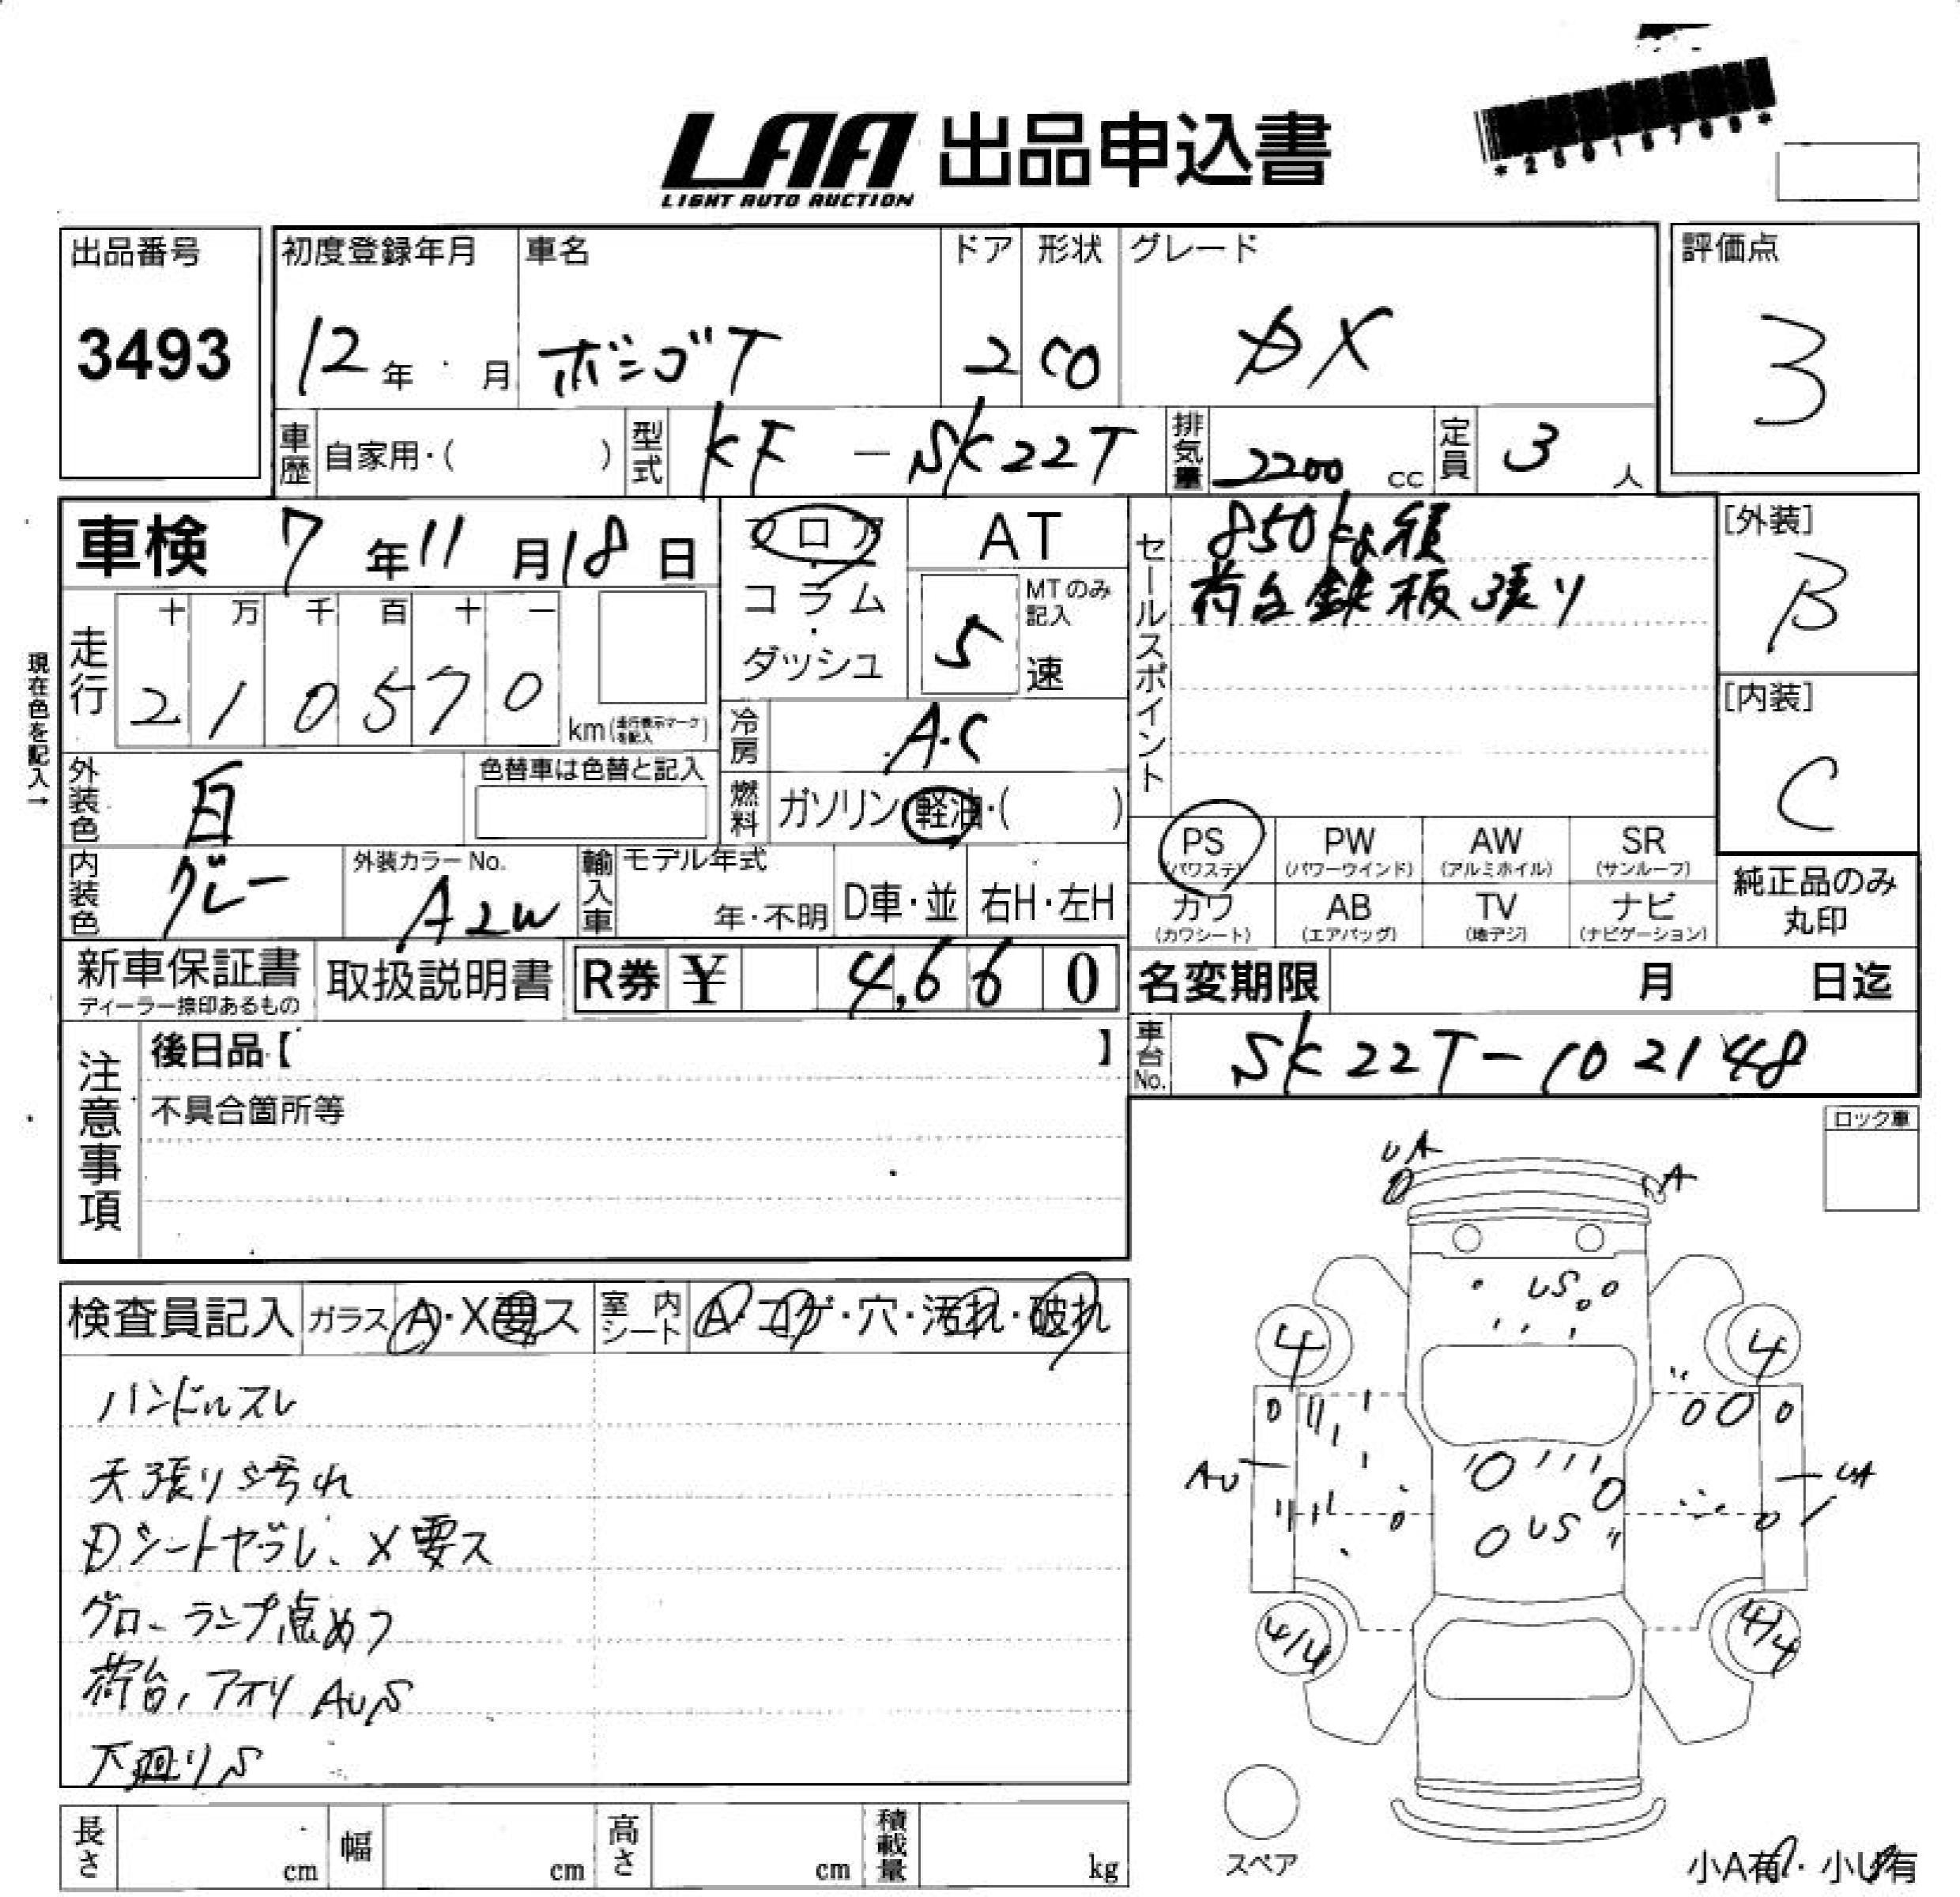 LAA 出品申込書
LIGHT AUTO AUCTION
出品番号
3493
初度登録年月
12年 月
車名
ボンゴT
ドア
2
形状
CO
グレード
DX
評価点
3
車歴 自家用・( )
型式 KF-SK22T
排気量 2200 cc
定員 3 人
車検 7年11月18日
フロア・コラム・ダッシュ
AT
MTのみ記入
5 速
セールスポイント
850kg積
荷台鉄板張り
[外装]
B
[内装]
C
現在色を記入→
走行
十 万 千 百 十 一
2 1 0 5 7 0
km(走行表示マークを記入)
冷房 A.C
燃料 ガソリン・軽油・( )
外装色 白
色替車は色替と記入
内装色 グレー
外装カラーNo.
A2W
輸入車
モデル年式
年・不明
D車・並
右H・左H
PS (パワステ)
PW (パワーウインド)
AW (アルミホイル)
SR (サンルーフ)
カワ (カワシート)
AB (エアバッグ)
TV (地デジ)
ナビ (ナビゲーション)
純正品のみ丸印
新車保証書
ディーラー捺印あるもの
取扱説明書
R券 ¥ 4,660
名変期限 月 日迄
車台No. SK22T-102148
注意事項
後日品【 】
不具合箇所等
ロック車
検査員記入
ガラス A・X要ス
室内シート A・コゲ・穴・汚れ・破れ
ハンドルスレ
天張り汚れ
Dシートヤブレ、X要ス
グローランプ点めつ
荷台、アオリ AUS
下廻りS
UA
A
US
4
4
AU
UA
US
4/4
4/4
スペア
小A有・小U有
長さ cm
幅 cm
高さ cm
積載量 kg